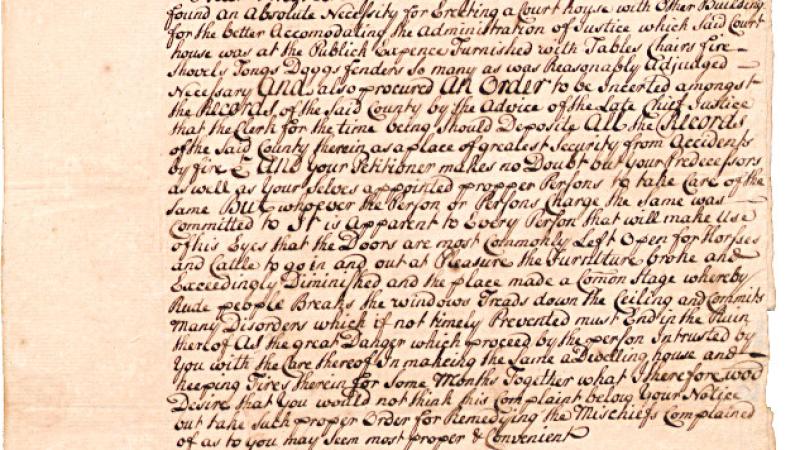 found an Absolute Necessity for Erecting a Court house with Other Building
for the better Accomodateing the Administration of Justice which Said Court
house was at the Publick Expence Furnished with Tables Chairs fire
Shovels Tongs Doggs fenders So many as was Reasonably Adjudged
Necessary And also procured an Order to be Incerted amongst
the Records of the Said County by the Advice of the Late Chief Justice
that the Clerk for the time being Should Deposite All the Records
of the Said County therein as a place of greatest Security from Accidents
by fire & And your Petitioner makes no Doubt but your Predecessors
as well as your Selves appointed propper Persons to take Care of the
Same But whoever the Person or Persons Charge the Same was
Committed to It is Apparent to Every Person that will make Use
of his Eyes that the Doors are most Commonly Left Open for Horses
and Cattle to go in and out at Pleasure the Furniture broke and
Exceedingly Diminished and the place made a Comon Stage whereby
Rude people Breaks the windows Treads down the Ceiling and Commits
many Disorders which if not timely Prevented must End in the Ruin
therof As the great Danger which proceed by the person Intrusted by
You with the Care thereof In makeing the Same a Dwelling house and
keeping Fires therein for Some Months Together what I therefore wod
Desire that You would not think this Complaint below Your Notice
but take Such proper Order for Remedying the Mischiefs Complained
of as to you may Seem most proper & Convenient